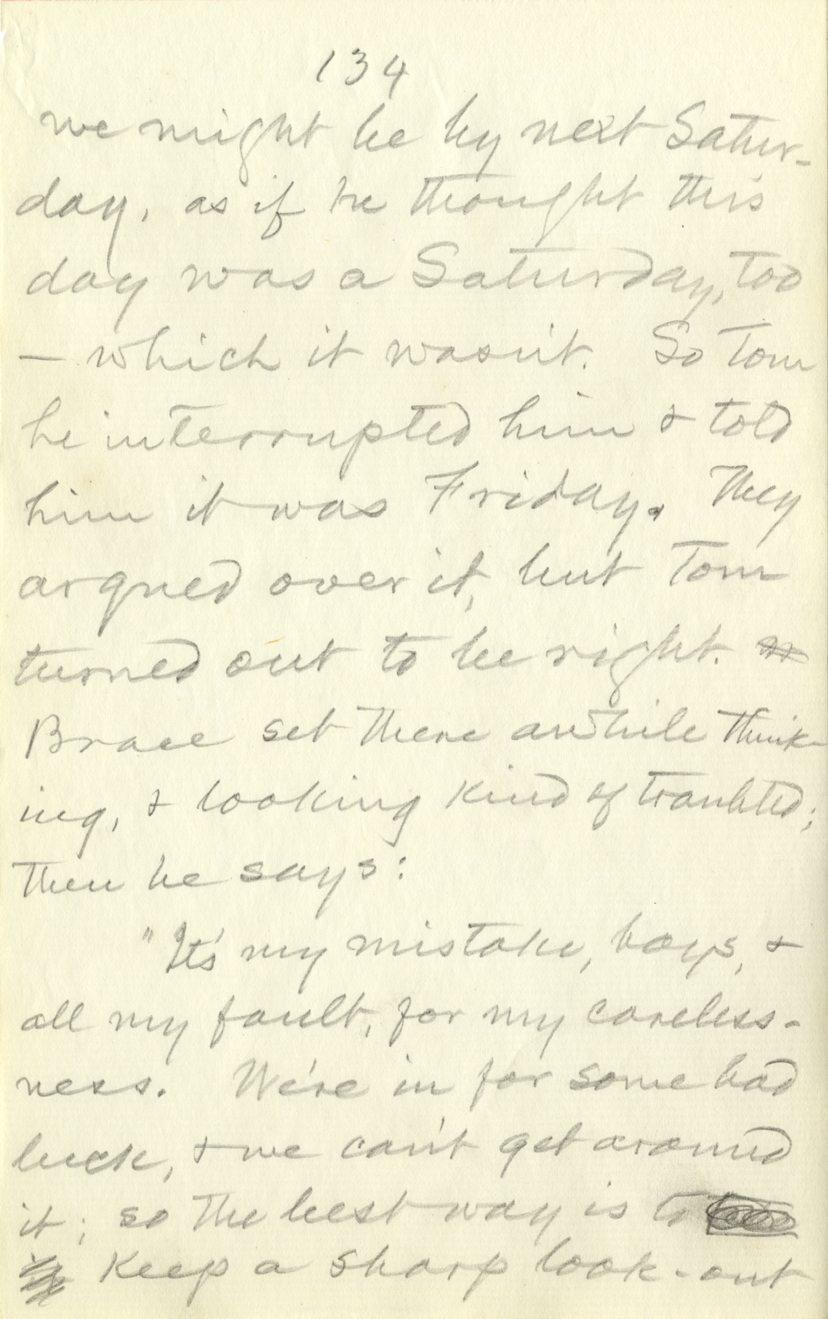 134
we might be by next Satur-
day, as if he thought this
day was a Saturday, too
— which it wasn't. So Tom
he interrupted him & told
him it was Friday. They
argued over it, but Tom
turned out to be right.
Brace set there awhile think-
ing, & looking kind of troubled;
then he says:
"It's my mistake, boys, &
all my fault, for my careless-
ness. We're in for some bad
luck, & we can't get around
it; so the best way is to
keep a sharp look-out